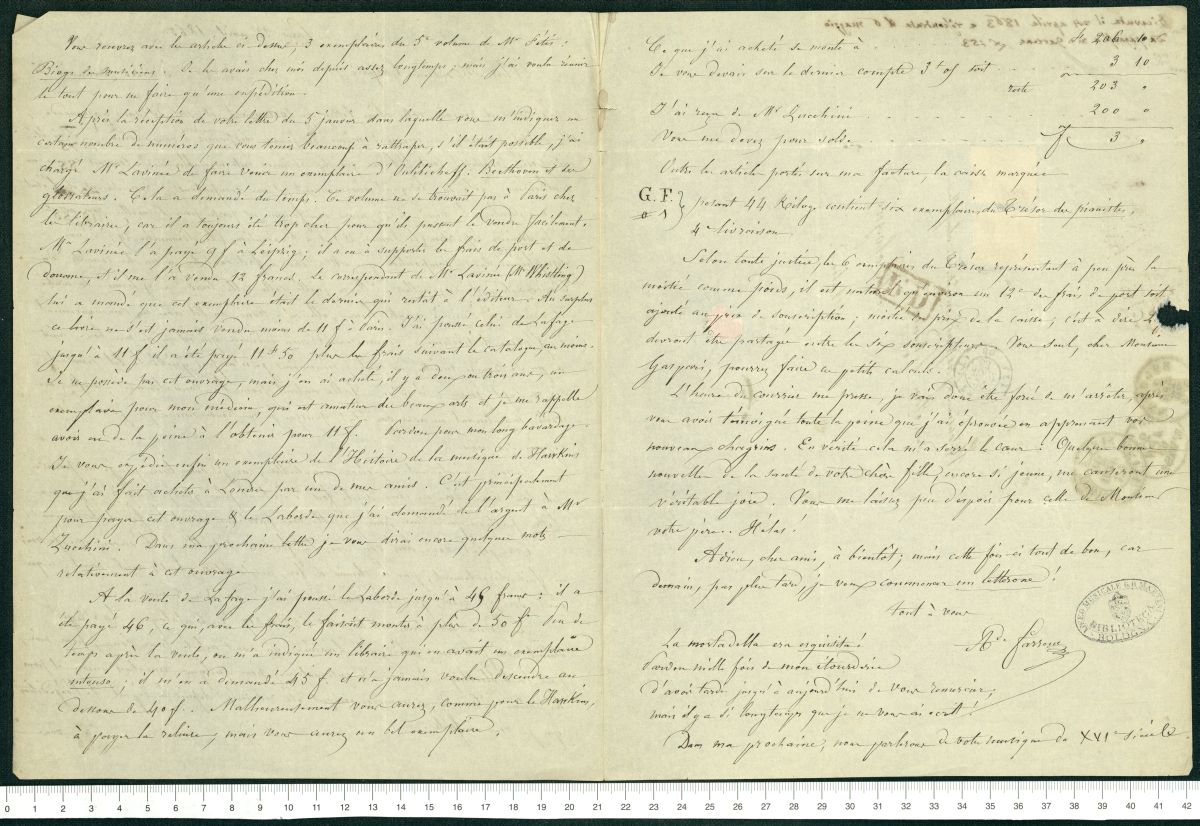 Vous recevrez avec les articles ci dessus, 3 exemplaires du 3e volume de Mr Fétis:
Biogr. des musiciens. Je les avais chez moi depuis assez longtemps; mais j'ai voulu réunir
le tout pour ne faire qu'une expédition.
Après la réception de votre lettre du 5 janvier dans laquelle vous m'indiquez un
certain nombre de numéros que vous teniez beaucoup à rattraper, s'il était possible, j'ai
chargé Mr Lavinée de faire venir un exemplaire d'Oulibicheff. Beethoven et ses
glossateurs. Cela a demandé du temps. Ce volume ne se trouvait pas à Paris chez
les libraires, car il a toujours été trop cher pour qu'ils pussent le vendre facilement.
Mr Lavinée l'a payé 9 f à Leipzig; il a eu à supporter les frais de port et de
douane, et il me l'a vendu 12 francs. Le correspondant de Mr Lavinée (Mr Whistling)
lui a mandé que cet exemplaire était le dernier qui restât à l'éditeur. Au surplus
ce livre ne s'est jamais vendu moins de 11 f à Paris. J'ai poussé celui de Lafage
jusqu'à 11 f il a été payé 11 f 50 plus les frais suivant le catalogue, en moins.
Je ne possède pas cet ouvrage, mais j'en ai acheté, il y a deux ou trois ans, un
exemplaire pour mon médecin, qui est amateur des beaux arts et je me rappelle
avoir eu de la peine à l'obtenir pour 11 f. Pardon pour mon long bavardage.
Je vous expédie enfin un exemplaire de l'Histoire de la musique de Hawkins
que j'ai fait acheter à Londres par un de mes amis. C'est principalement
pour payer cet ouvrage & le Laborde que j'ai demandé de l'argent à Mr
Zucchini. Dans ma prochaine lettre je vous dirai encore quelques mots
relativement à cet ouvrage
A la vente de Lafage j'ai poussé le Laborde jusqu'à 45 francs: il a
été payé 46, ce qui, avec les frais, le faisait monter à plus de 50 f. Peu de
temps après la vente, on m'a indiqué un libraire qui en avait un exemplaire
intonso; il m'en a demandé 45 f et n'a jamais voulu descendre au-
dessous de 40 f. Malheureusement vous aurez, comme pour le Hawkins,
à payer la reliure, mais vous aurez un bel exemplaire.
Ricevuta il 29 aprile 1863 e riscontrata il 6 maggio
Ce que j'ai acheté se monte à fr 206 10
Je vous devais sur le dernier compte 3 f 10 soit 3 10
reste 203 "
J'ai reçu de Mr Zucchini 200 "
Vous me devez pour solde f 3 "
Outre les articles portés sur ma facture la caisse marquée
G. F. n° 1 } pesant 44 Kilogs contient six exemplaires du Trésor des pianistes,
4e livraison.
Selon toute justice, les 6 exemplaires du Trésor représentant à peu près la
moitié comme poids, il est naturel qu'environ un 12e des frais de port soit
ajouté au prix de souscription; moitié du prix de la caisse, c'est à dire
devront être partagés entre les six souscripteurs. Vous seul, cher Monsieur
Gaspari, pourrez faire ce petit calcul.
L'heure du courrier me presse, je vais donc être forcé de m'arrêter, après
vous avoir témoigné toute la peine que j'ai éprouvée en apprenant vos
nouveaux chagrins. En vérité cela m'a serré le cœur! Quelques bonnes
nouvelles de la santé de votre chère fille, encore si jeune, me causeront une
véritable joie. Vous me laissez peu d'espoir pour celle de Monsieur
votre père. Hélas.
Adieu, cher ami, à bientôt; mais cette fois-ci tout de bon, car
demain, pas plus tard, je veux commencer un letterone!
Tout à vous
Ade Farrenc
La mortadella era exquisita!
Pardon mille fois de mon étourderie
d'avoir tardé jusqu'à aujourd'hui de vous remercier;
mais il y a si longtemps que je ne vous ai écrit!
Dans ma prochaine, nous parlerons de votre musique du XVIe siècle.
LICEO MUSICALE G.B. MARTINI
BIBLIOTECA
BOLOGNA
0 1 2 3 4 5 6 7 8 9 10 11 12 13 14 15 16 17 18 19 20 21 22 23 24 25 26 27 28 29 30 31 32 33 34 35 36 37 38 39 40 41 42